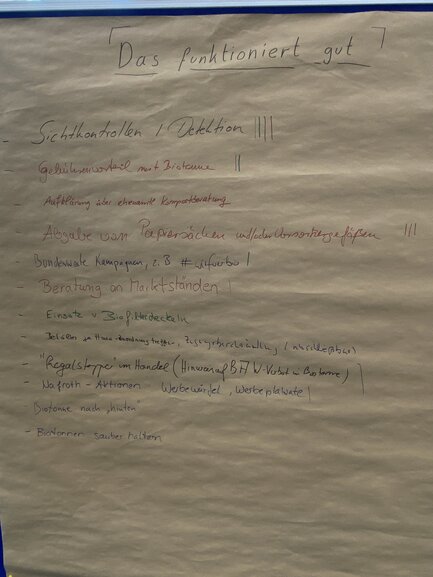 Das funktioniert gut
- Sichtkontrollen / Detektion ||||
- Gebührenvorteil mit Biotonne ||
- Aufklärung über ehrenamtl. Kompostberatung
- Abgabe von Papiersäcken und/oder Vorsortiergefäßen |||
- Bundesweite Kampagnen, z.B # wirfuerbio |
- Beratung an Marktständen |
- Einsatz v Biofilterdeckeln
- Behälter zu Hause
- "Regalstopper" im Handel (Hinweis auf BAW-Verbot in Biotonne) |
- Nafroth - Aktionen Werbewürfel, Werbeplakate |
Biotonne nach "hinten"
- Biotonnen sauber halten